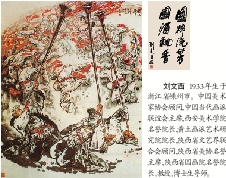 國粹流芳
國酒飄香
刘文西 1933年生于
浙江省嵊州市，中国美术
家协会顾问,中国当代画派
联谊会主席,西安美术学院
名誉院长,黄土画派艺术研
究院院长,陕西省文艺界联
合会顾问,陕西省美协名誉
主席,陕西省国画院名誉院
长,教授,博士生导师。